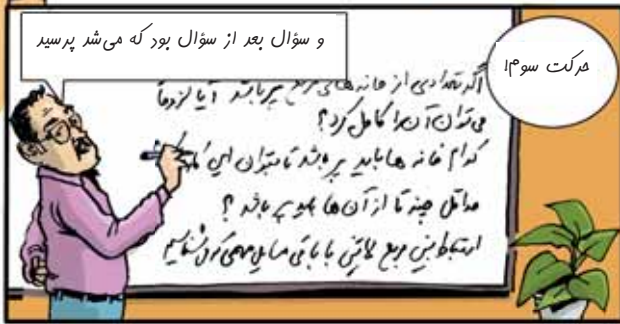 و سؤال بعد از سؤال بود که می‌شد پرسید
حرکت سوم!
اگر تعدادی از خانه‌های مربع پر باشد آیا لزوماً
می‌توان آن را کامل کرد؟
کدام خانه‌ها باید پر باشد تا بتوان این
حداقل چند تا از آن‌ها باید پر باشد؟
ارتباط بین مربع لاتین با باقی مسایل مهمی که می‌شناسیم